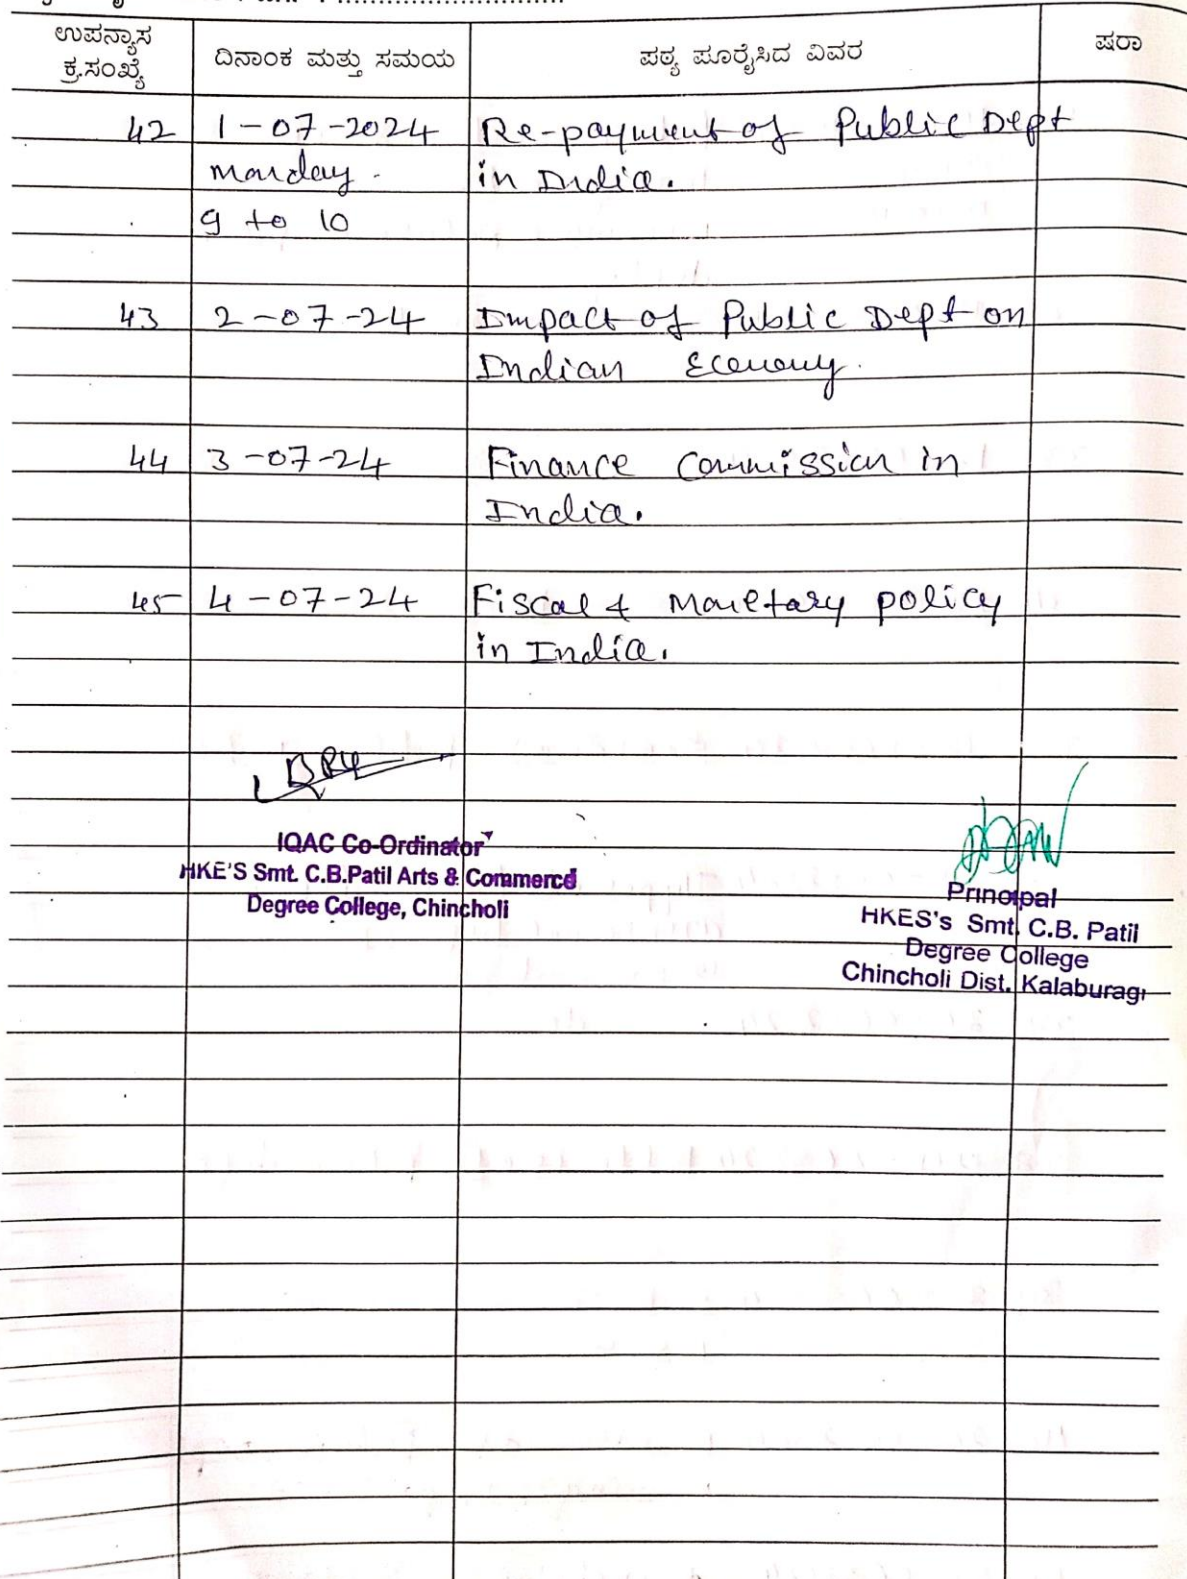 ಉಪನ್ಯಾಸ ಕ್ರ.ಸಂಖ್ಯೆ ದಿನಾಂಕ ಮತ್ತು ಸಮಯ ಪಠ್ಯ ಪೂರೈಸಿದ ವಿವರ ಷರಾ
42 1-07-2024 Re-payment of Public Dept
Monday. in India.
9 to 10
43 2-07-24 Impact of Public Dept on
Indian Economy.
44 3-07-24 Finance Commission in
India.
45 4-07-24 Fiscal & Monetary policy
in India.
IQAC Co-Ordinator
HKE'S Smt. C.B.Patil Arts & Commerce
Degree College, Chincholi
Principal
HKES's Smt. C.B. Patil
Degree College
Chincholi Dist. Kalaburagi